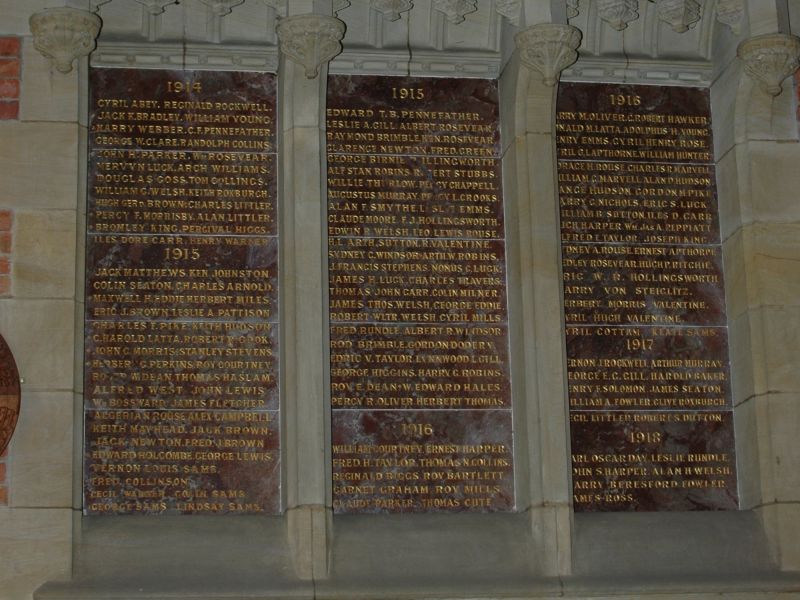 1914
CYRIL ABEY. REGINALD ROCKWELL.
JACK K. BRADLEY. WILLIAM YOUNG.
HARRY WEBBER. C.F. PENNEFATHER.
GEORGE W. CLARE. RANDOLPH COLLINS.
JOHN H. PARKER. WM ROSEVEAR.
MERVYN LUCK. ARCH WILLIAMS.
DOUGLAS GOSS. TOM COLLINGS.
WILLIAM G. WELSH. KEITH ROXBURGH.
HUGH GERD BROWN. CHARLES LITTLER.
PERCY F. MORRISBY. ALAN LITTLER.
BROMLEY KING. PERCIVAL HIGGS.
ILES DORE CARR. HENRY WARNER
1915
JACK MATTHEWS. KEN. JOHNSTON.
COLIN SEATON. CHARLES ARNOLD.
MAXWELL H. EDDIE. HERBERT MILES.
ERIC J. BROWN. LESLIE A. PATTISON
CHARLES F. PIKE. KEITH HUDSON
C. HAROLD LATTA. ROBERT R. COOK.
JOHN C. MORRIS. STANLEY STEVENS.
HERBERT C. PERKINS. ROY COURTNEY.
W. DEAN. THOMAS HASLAM.
ALFRED WEST. JOHN LEWIS
WM BOSWARD. JAMES FLETCHER.
ALGERIAN ROUSE. ALEX CAMPBELL.
KEITH MAYHEAD. JACK BROWN.
JACK NEWTON. FRED J. BROWN
EDWARD HOLCOMBE. GEORGE LEWIS.
VERNON LOUIS SAMS.
FRED. COLLINSON.
CECIL WARNER. COLIN SAMS
GEORGE SAMS. LINDSAY SAMS.
1915
EDWARD T.B. PENNEFATHER.
LESLIE A. GILL. ALBERT ROSEVEAR.
RAYMOND BRIMBLE. KEN. ROSEVEAR.
CLARENCE NEWTON. FRED. GREEN.
GEORGE BIRNIE ILLINGWORTH.
ALF STAN ROBINS. ROBERT STUBBS.
WILLIE THURLOW. PERCY CHAPPELL.
AUGUSTUS MURRAY. PERCY L. CROOKS.
ALAN F. SMYTHE. L. ST. L. EMMS.
CLAUDE MOORE. F.J. HOLLINGSWORTH.
EDWIN R. WELSH. LEO LEWIS ROUSE.
H.L. ARTH. SUTTON. R. VALENTINE.
SYDNEY C. WINDSOR. ARTH. W. ROBINS.
J. FRANCIS STEPHENS. NONUS C. LUCK.
JAMES H. LUCK. CHARLES TRAVERS.
THOMAS JOHN CARR. COLIN MILNER.
JAMES THOS. WELSH. GEORGE EDDIE.
ROBERT WLTR WELSH. CYRIL MILLS.
FRED. RUNDLE. ALBERT R. WINDSOR.
ROD BRIMBLE. GORDON DODERY.
EDRIC V. TAYLOR. LYNNWOOD L. GILL.
GEORGE HIGGINS. HARRY C. ROBINS.
ROY E. DEAN. W. EDWARD HALES.
PERCY R. OLIVER. HERBERT THOMAS.
1916
WILLIAM COURTNEY. ERNEST HARPER.
FRED. H. TAYLOR. THOMAS N. COLLINS.
REGINALD BIGGS. ROY BARTLETT
GARNET GRAHAM. ROY MILLS.
CLAUDE PARKER. THOMAS CUTE.
1916
M. OLIVER. C. ROBERT HAWKER.
M. LATTA. ADOLPHUS H. YOUNG.
EMMS. CYRIL HENRY ROSE.
C. LAPTHORNE. WILLIAM HUNTER
H. ROUSE. CHARLES R. MARVELL
C. MARVELL. ALAN D. HUDSON
HUDSON. GORDON M. PIKE.
C. NICHOLS. ERIC S. LUCK.
B. SUTTON. ILES D. CARR.
HARPER. WM JAS A. PEPPIATT
E. TAYLOR. JOSEPH KING
A. ROUSE. ERNEST APTHORPE
ROSEVEAR. HUGH P. RITCHIE.
W. R. HOLLINGSWORTH
VON STEIGLITZ.
MORRIS VALENTINE.
HUGH VALENTINE.
COTTAM. KEATE SAMS
1917
J. ROCKWELL. ARTHUR MURRAY.
E.C. GILL. HAROLD BAKER.
F. SOLOMON. JAMES SEATON.
A. FOWLER. CLIVE ROXBURGH.
LITTLER. ROBERT S. DUTTON.
1918
OSCAR DAY. LESLIE RUNDLE.
S. HARPER. ALAN H. WELSH.
BERESFORD FOWLER.
ROSS.